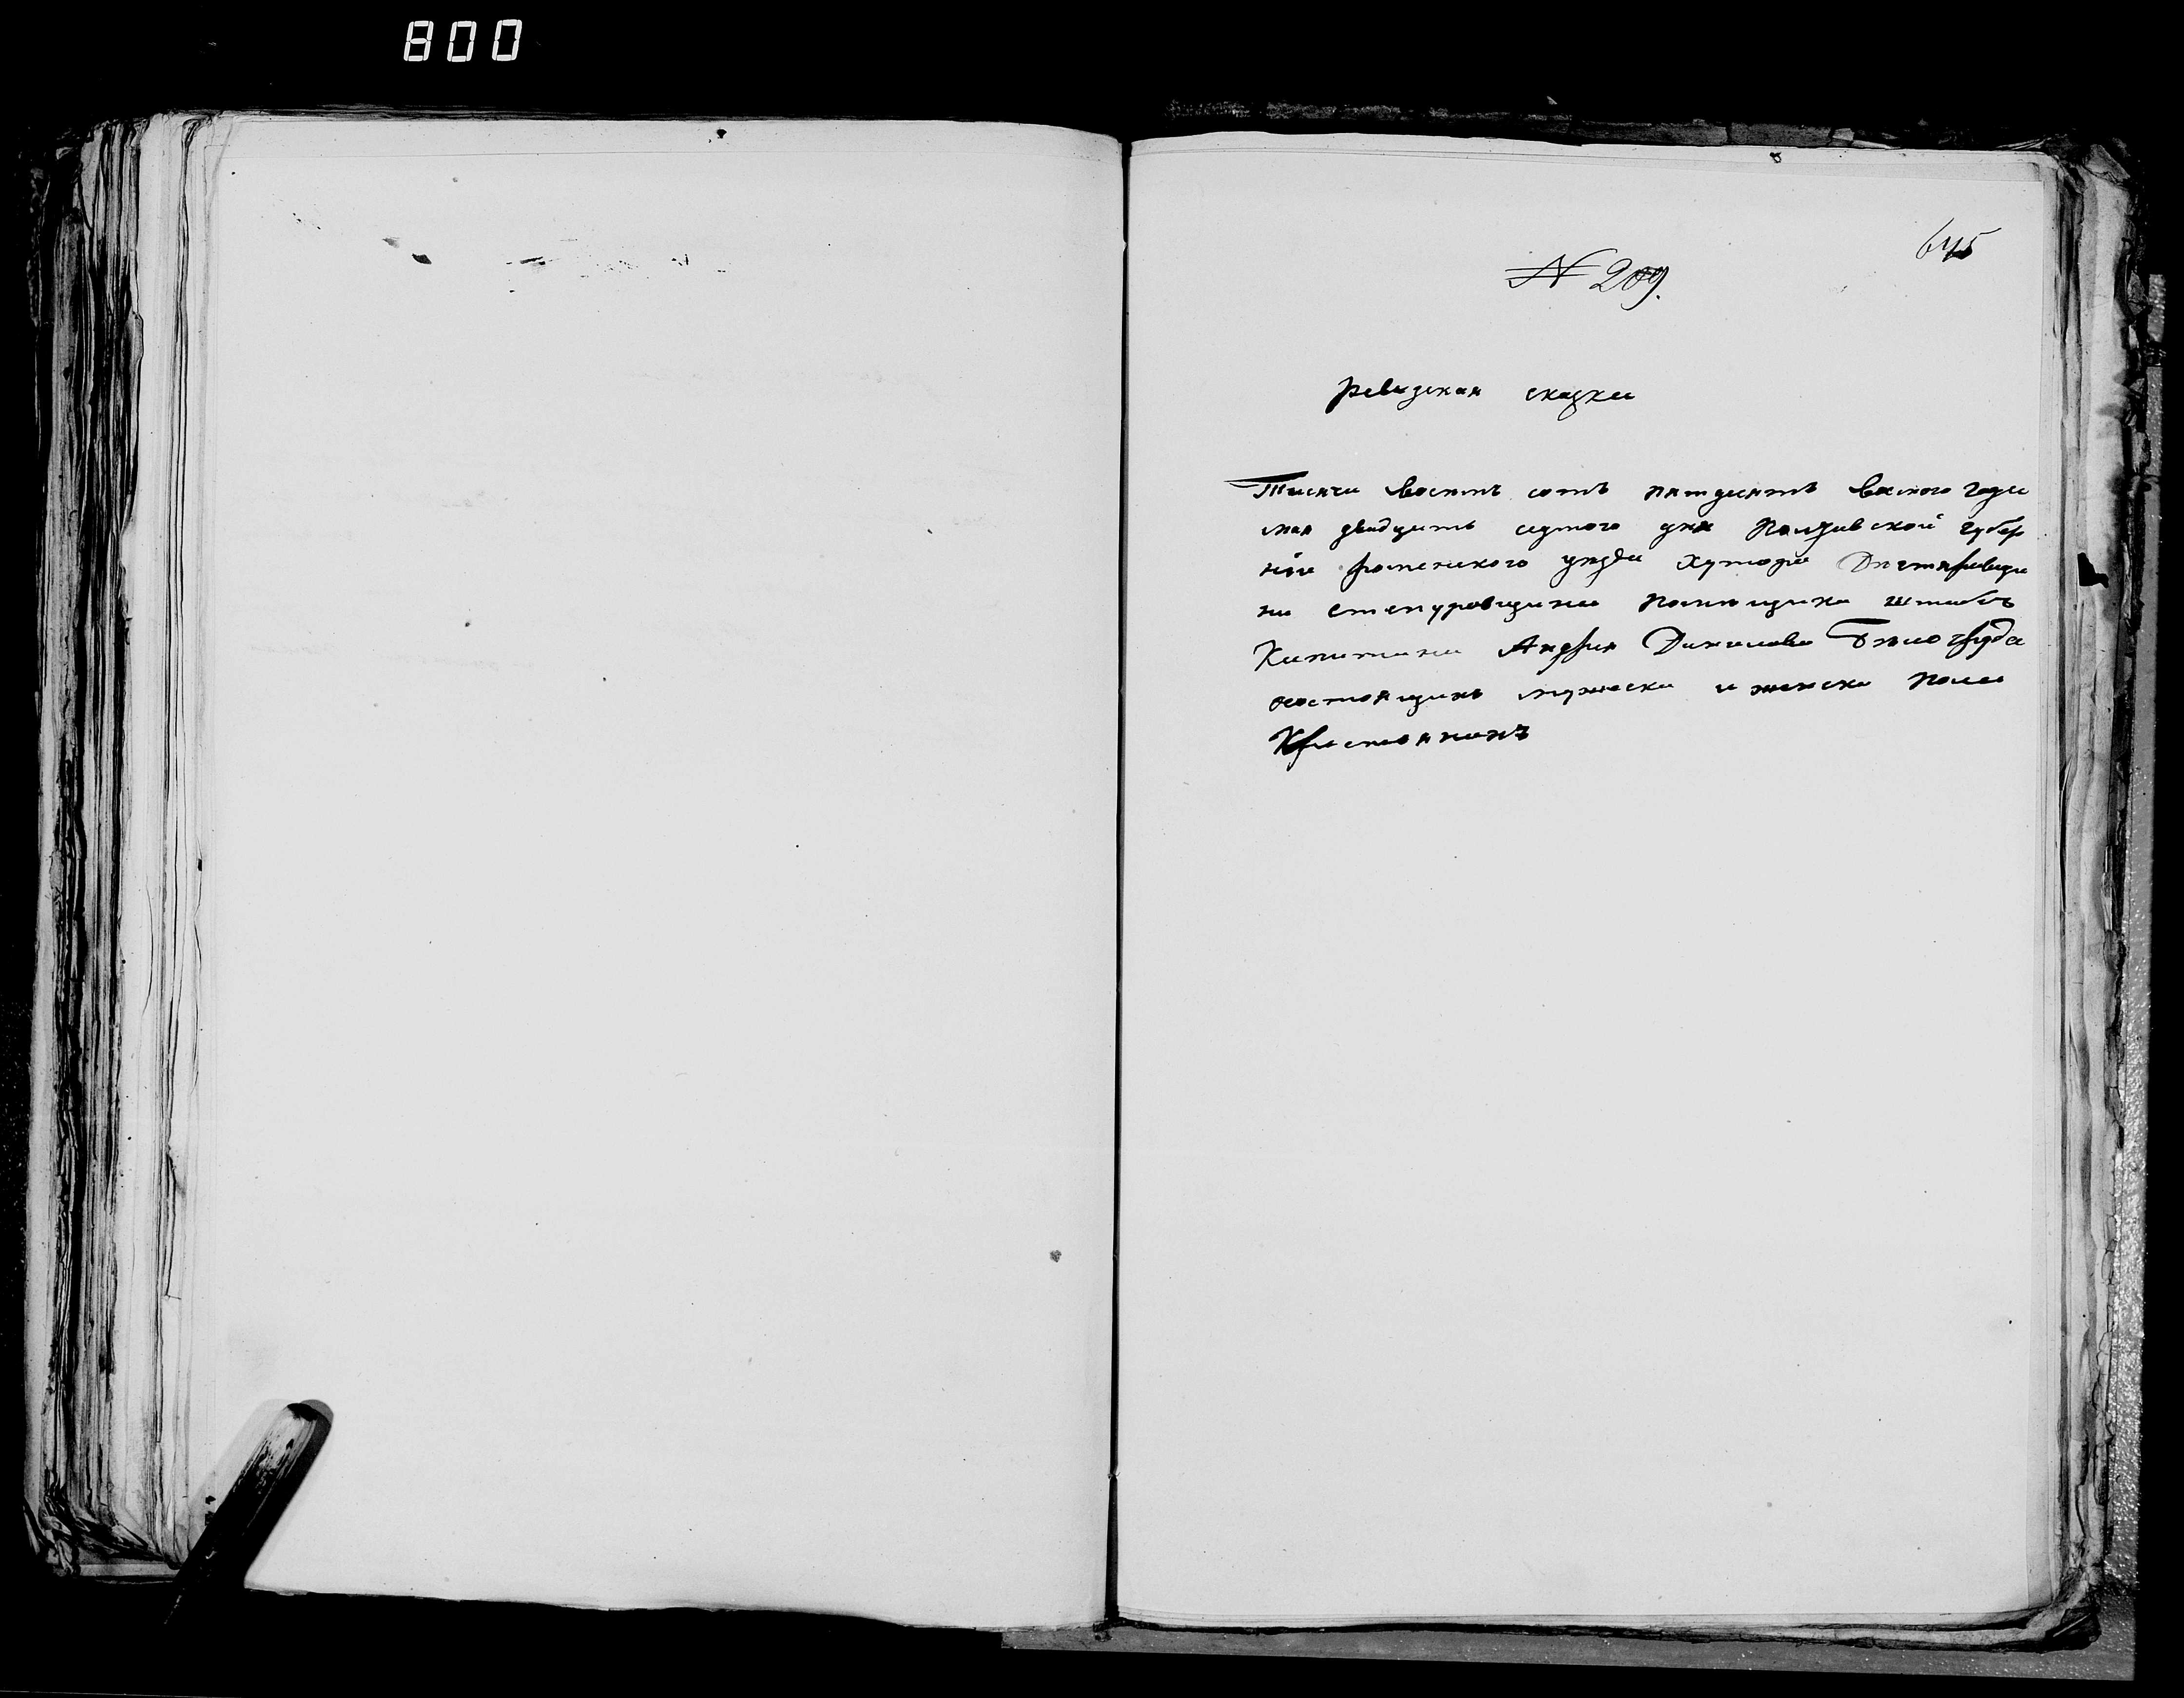 800
645
№ 209.
Ревизская сказка
Тисяча восемъ сотъ пятдесятъ восмого года
мая двадцать седмого дня Полтавской губер
нiи роменского уезда Хутора
помещика штабсъ
Капитана Андрея Данилова Белогруда
осостоящихъ мужеска и женска пола
Крестьянахъ